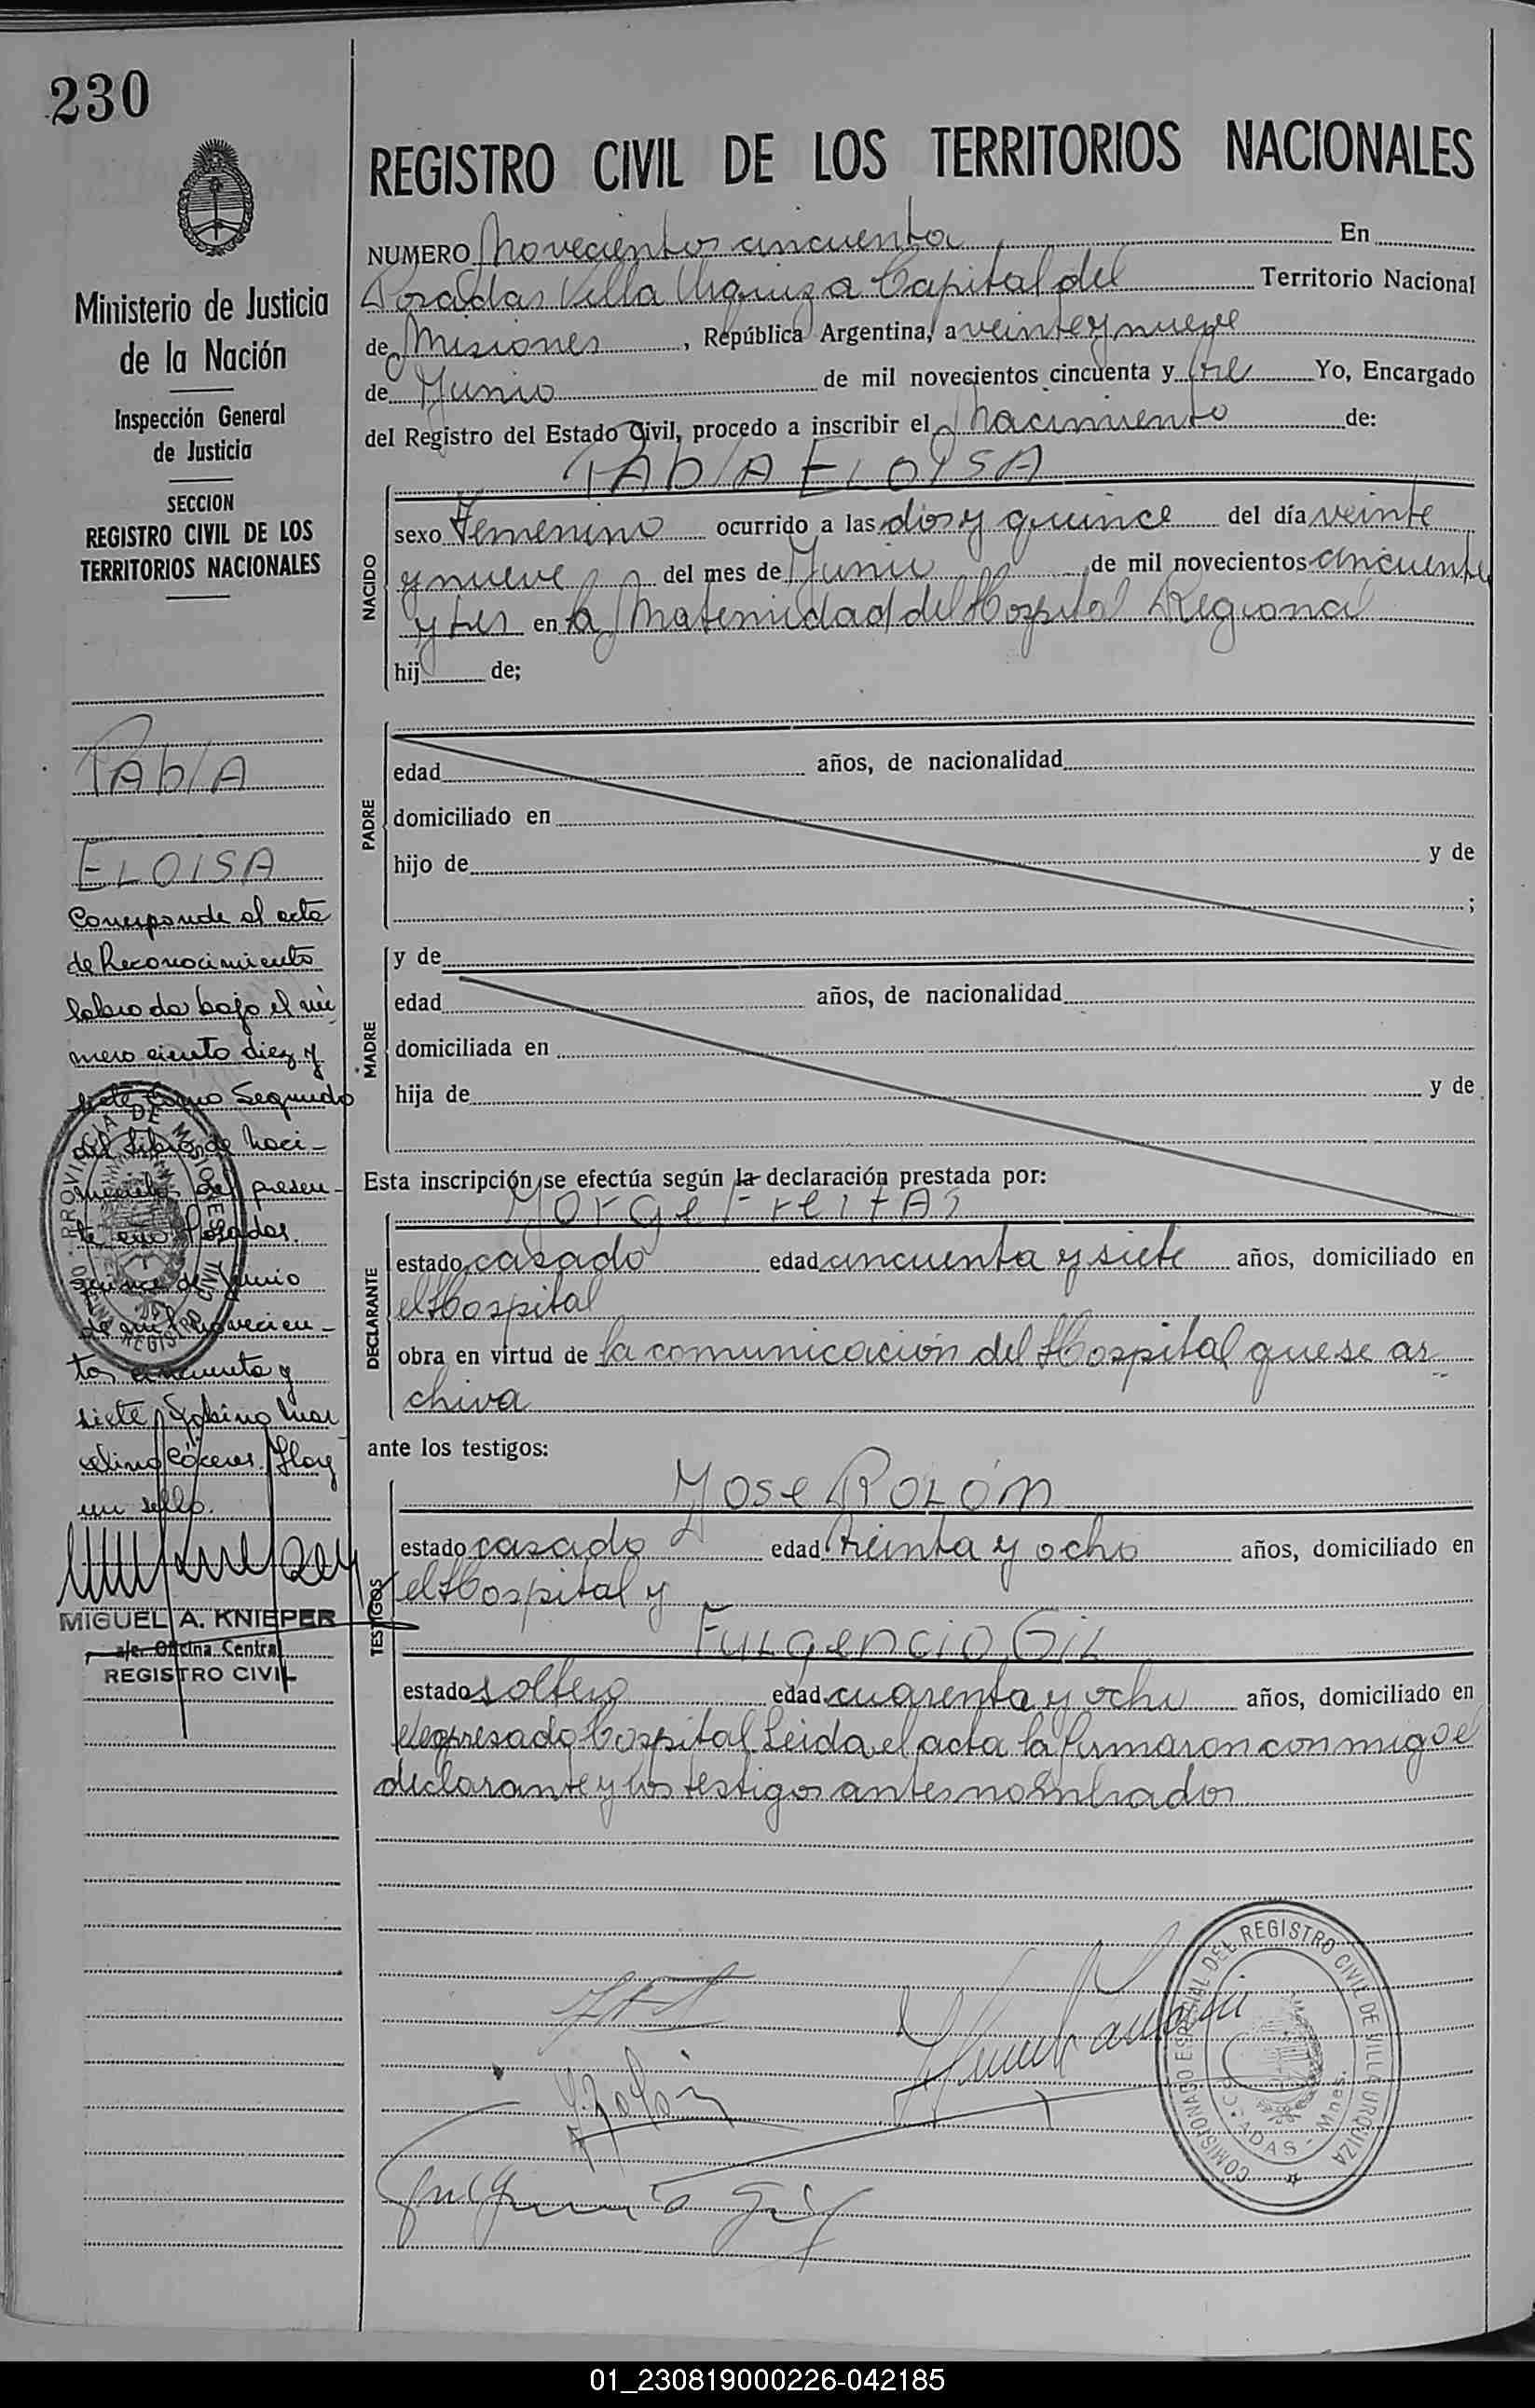 230
Ministerio de Justicia
de la Nación
Inspección General
de Justicia
SECCION
REGISTRO CIVIL DE LOS
TERRITORIOS NACIONALES
PAblA
ELOISA
Corresponde al acta
de Reconocimiento
labrada bajo el nú
mero ciento diez y
siete tomo Segundo
del Libro de Naci-
mientos del presen-
te año Posadas.
quince de Junio
de mil novecien-
tos cincuenta y
siete Sabino Mar
celino Cáceres. Hay
un sello.
PROVINCIA DE MISIONES
MIGUEL A. KNIEPER
a/c. Oficina Central
REGISTRO CIVIL
REGISTRO CIVIL DE LOS TERRITORIOS NACIONALES
NUMERO Novecientos cincuenta En
Posadas Villa Urquiza Capital del Territorio Nacional
de Misiones, República Argentina, a veinte y nueve
de Junio de mil novecientos cincuenta y tre Yo, Encargado
del Registro del Estado Civil, procedo a inscribir el Nacimiento de:
PAblA ELOISA
NACIDO
sexo Femenino ocurrido a las dos y quince del día veinte
y nueve del mes de Junio de mil novecientos cincuenta
y tres en la Maternidad del Hospital Regional
hij de;
PADRE
edad años, de nacionalidad
domiciliado en
hijo de y de
;
MADRE
y de
edad años, de nacionalidad
domiciliada en
hija de y de
Esta inscripción se efectúa según la declaración prestada por:
Jorge FreitAs
DECLARANTE
estado casado edad cincuenta y siete años, domiciliado en
el Hospital
obra en virtud de la comunicación del Hospital que se ar
chiva
ante los testigos:
Jose ROLÓN
TESTIGOS
estado casado edad treinta y ocho años, domiciliado en
el Hospital y
FULgencio GiL
estado soltero edad cuarenta y ocho años, domiciliado en
el expresado hospital Leida el acta la firmaron conmigo el
declarante y los testigos antes nombrados
COMISIONADO ESPECIAL DEL REGISTRO CIVIL DE VILLA URQUIZA
POSADAS - Mnes.
J. Rolón
Fulgencio Gil
01_230819000226-042185